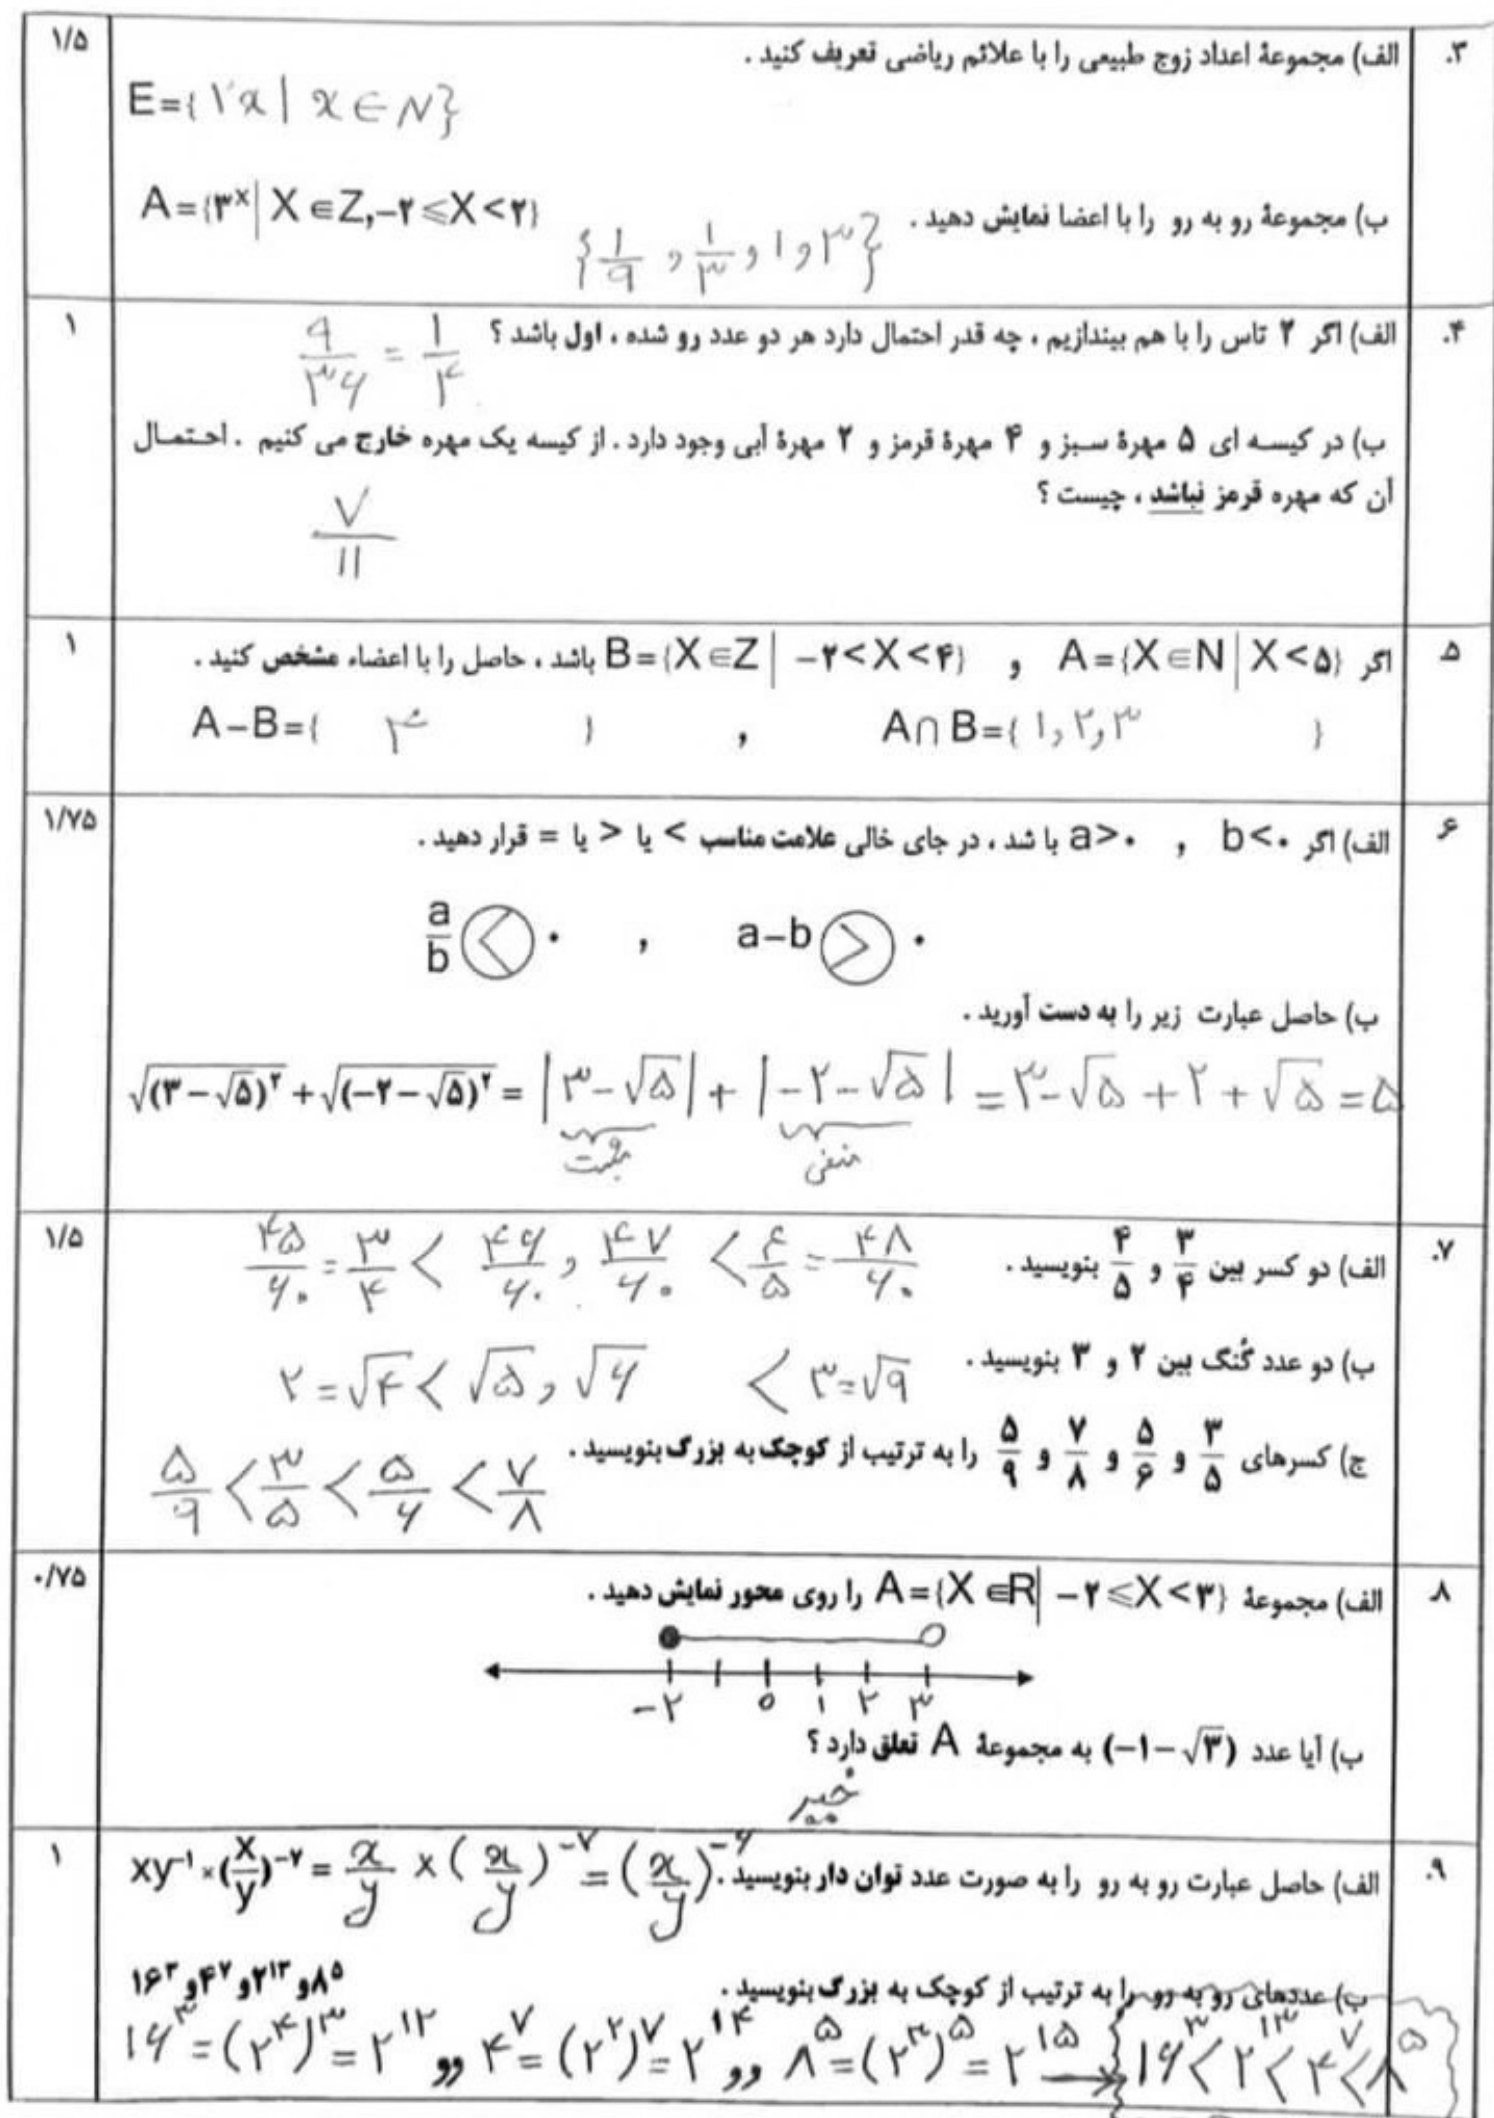 ۳. الف) مجموعهٔ اعداد زوج طبیعی را با علائم ریاضی تعریف کنید . ۱/۵
E={۲x | x ∈ N}
ب) مجموعهٔ رو به رو را با اعضا نمایش دهید . A={۳ˣ | X ∈ Z, −۲ ≤ X < ۲}
{۱/۹ و ۱/۳ و ۱ و ۳}
۴. الف) اگر ۲ تاس را با هم بیندازیم ، چه قدر احتمال دارد هر دو عدد رو شده ، اول باشد ؟ ۹/۳۶ = ۱/۴ ۱
ب) در کیسه ای ۵ مهرهٔ سبز و ۴ مهرهٔ قرمز و ۲ مهرهٔ آبی وجود دارد . از کیسه یک مهره خارج می کنیم . احتمال
آن که مهره قرمز نباشد ، چیست ؟
۷/۱۱
۵ اگر A={X ∈ N | X < ۵} و B={X ∈ Z | −۲ < X < ۴} باشد ، حاصل را با اعضاء مشخص کنید . ۱
A∩B={ ۱, ۲, ۳ } , A−B={ ۴ }
۶ الف) اگر b<۰ , a>۰ با شد ، در جای خالی علامت مناسب > یا < یا = قرار دهید . ۱/۷۵
a/b < ۰ , a−b > ۰
ب) حاصل عبارت زیر را به دست آورید .
√(۳−√۵)² + √(−۲−√۵)² = |۳−√۵| + |−۲−√۵| = ۳−√۵ + ۲ + √۵ = ۵
مثبت منفی
۷. الف) دو کسر بین ۳/۴ و ۴/۵ بنویسید . ۴۵/۶۰ = ۳/۴ < ۴۶/۶۰ , ۴۷/۶۰ < ۴/۵ = ۴۸/۶۰ ۱/۵
ب) دو عدد گنگ بین ۲ و ۳ بنویسید . ۲ = √۴ < √۵ , √۶ < ۳ = √۹
ج) کسرهای ۳/۵ و ۵/۶ و ۷/۸ و ۵/۹ را به ترتیب از کوچک به بزرگ بنویسید . ۵/۹ < ۳/۵ < ۵/۶ < ۷/۸
۸ الف) مجموعهٔ A={X ∈ R | −۲ ≤ X < ۳} را روی محور نمایش دهید . ۰/۷۵
−۲ ۰ ۱ ۲ ۳
ب) آیا عدد (−۱−√۳) به مجموعهٔ A تعلق دارد ؟
خیر
۹. الف) حاصل عبارت رو به رو را به صورت عدد توان دار بنویسید . xy⁻¹ × (x/y)⁻⁷ = x/y × (x/y)⁻⁷ = (x/y)⁻⁶ ۱
ب) عددهای رو به رو را به ترتیب از کوچک به بزرگ بنویسید . ۸⁵ و ۲¹³ و ۴⁷ و ۱۶³
۱۶³ = (۲⁴)³ = ۲¹² وو ۴⁷ = (۲²)⁷ = ۲¹⁴ وو ۸⁵ = (۲³)⁵ = ۲¹⁵ → ۱۶³ < ۲¹³ < ۴⁷ < ۸⁵